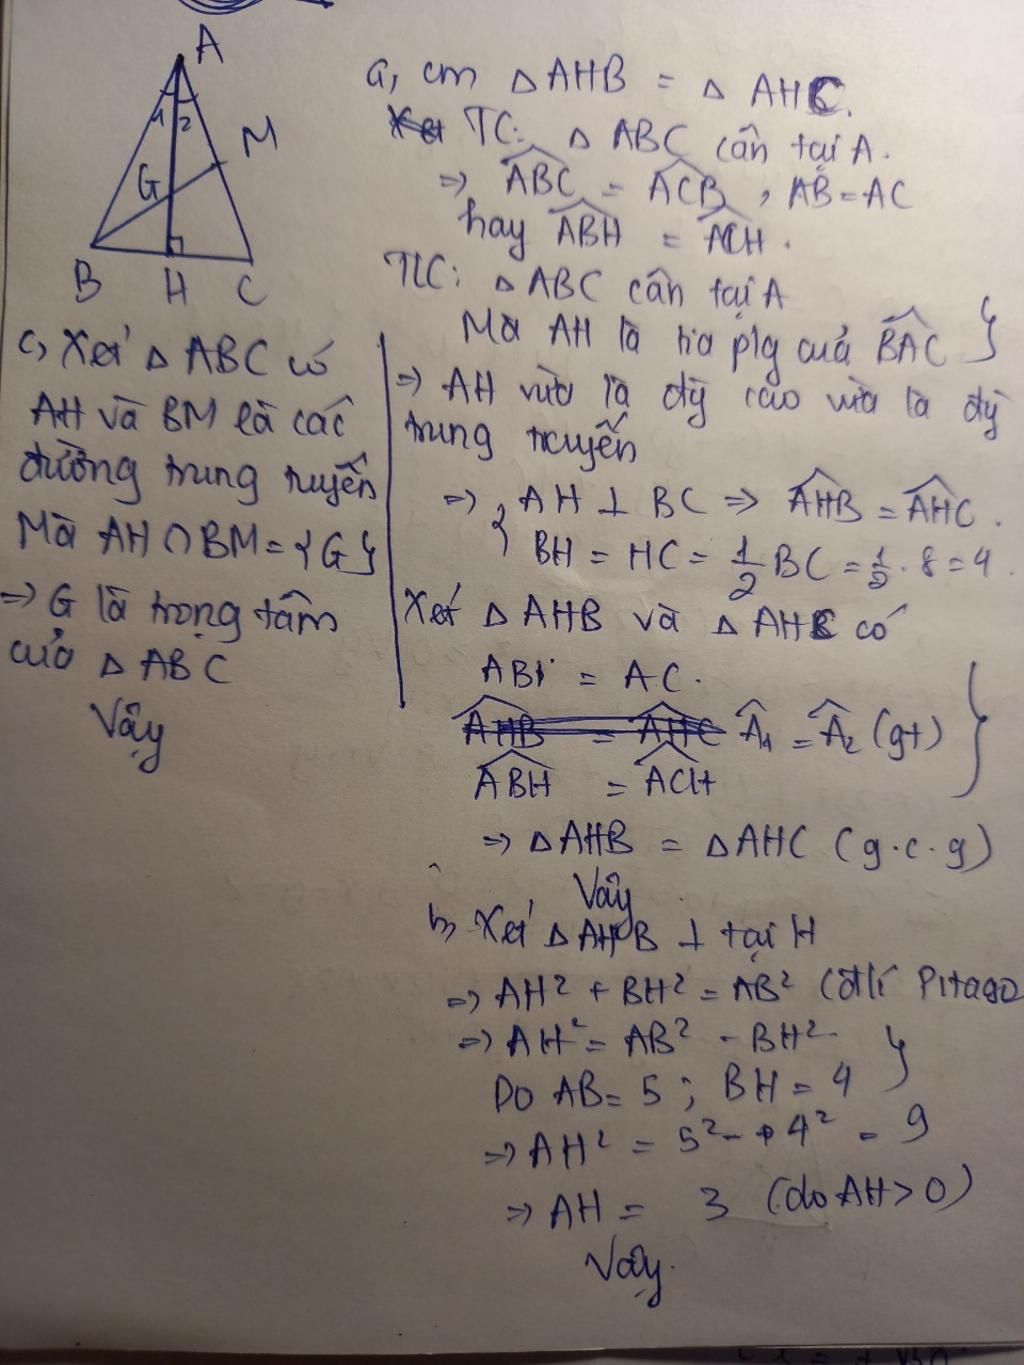 A
1 2
M
G
B H C
a, cm △ AHB = △ AHC.
TC: △ ABC cân tại A.
=> ABC = ACB, AB = AC
hay ABH = ACH.
△ ABC cân tại A
Mà AH là tia plg của BAC }
=> AH vừa là đg cao vừa là đg
trung truyến
=> { AH ⊥ BC => AHB = AHC.
BH = HC = 1/2 BC = 1/2 . 8 = 4.
Xét △ AHB và △ AHC có
AB = AC.
AHB = AHC A1 = A2 (gt)
ABH = ACH }
=> △ AHB = △ AHC (g.c.g)
Vậy
b, Xét △ AHB ⊥ tại H
=> AH² + BH² = AB² (đlí Pitago
=> AH² = AB² - BH²
Do AB = 5 ; BH = 4 }
=> AH² = 5² - 4² = 9
=> AH = 3 (do AH > 0)
Vậy.
c, Xét △ ABC có
AH và BM là các
đường trung tuyến
Mà AH ∩ BM = {G}
=> G là trọng tâm
của △ ABC
Vậy